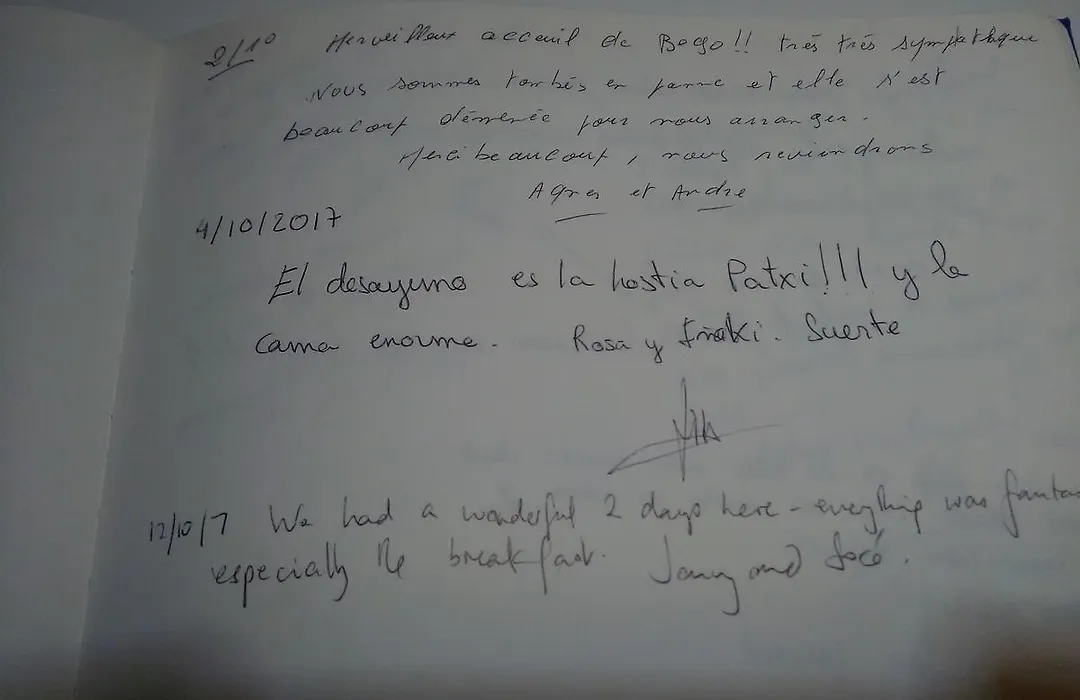 2/10 Merveilleux acceuil de Bego!! très très sympathique
Nous sommes tombés en panne et elle s'est
beaucoup démenée pour nous arranger.
Merci beaucoup, nous reviendrons
Agnes et Andre
4/10/2017
El desayuno es la hostia Patxi!!! y la
cama enorme. Rosa y Iñaki. Suerte
12/10/7 We had a wonderful 2 days here - everything was fantas
especially the breakfast. and José.